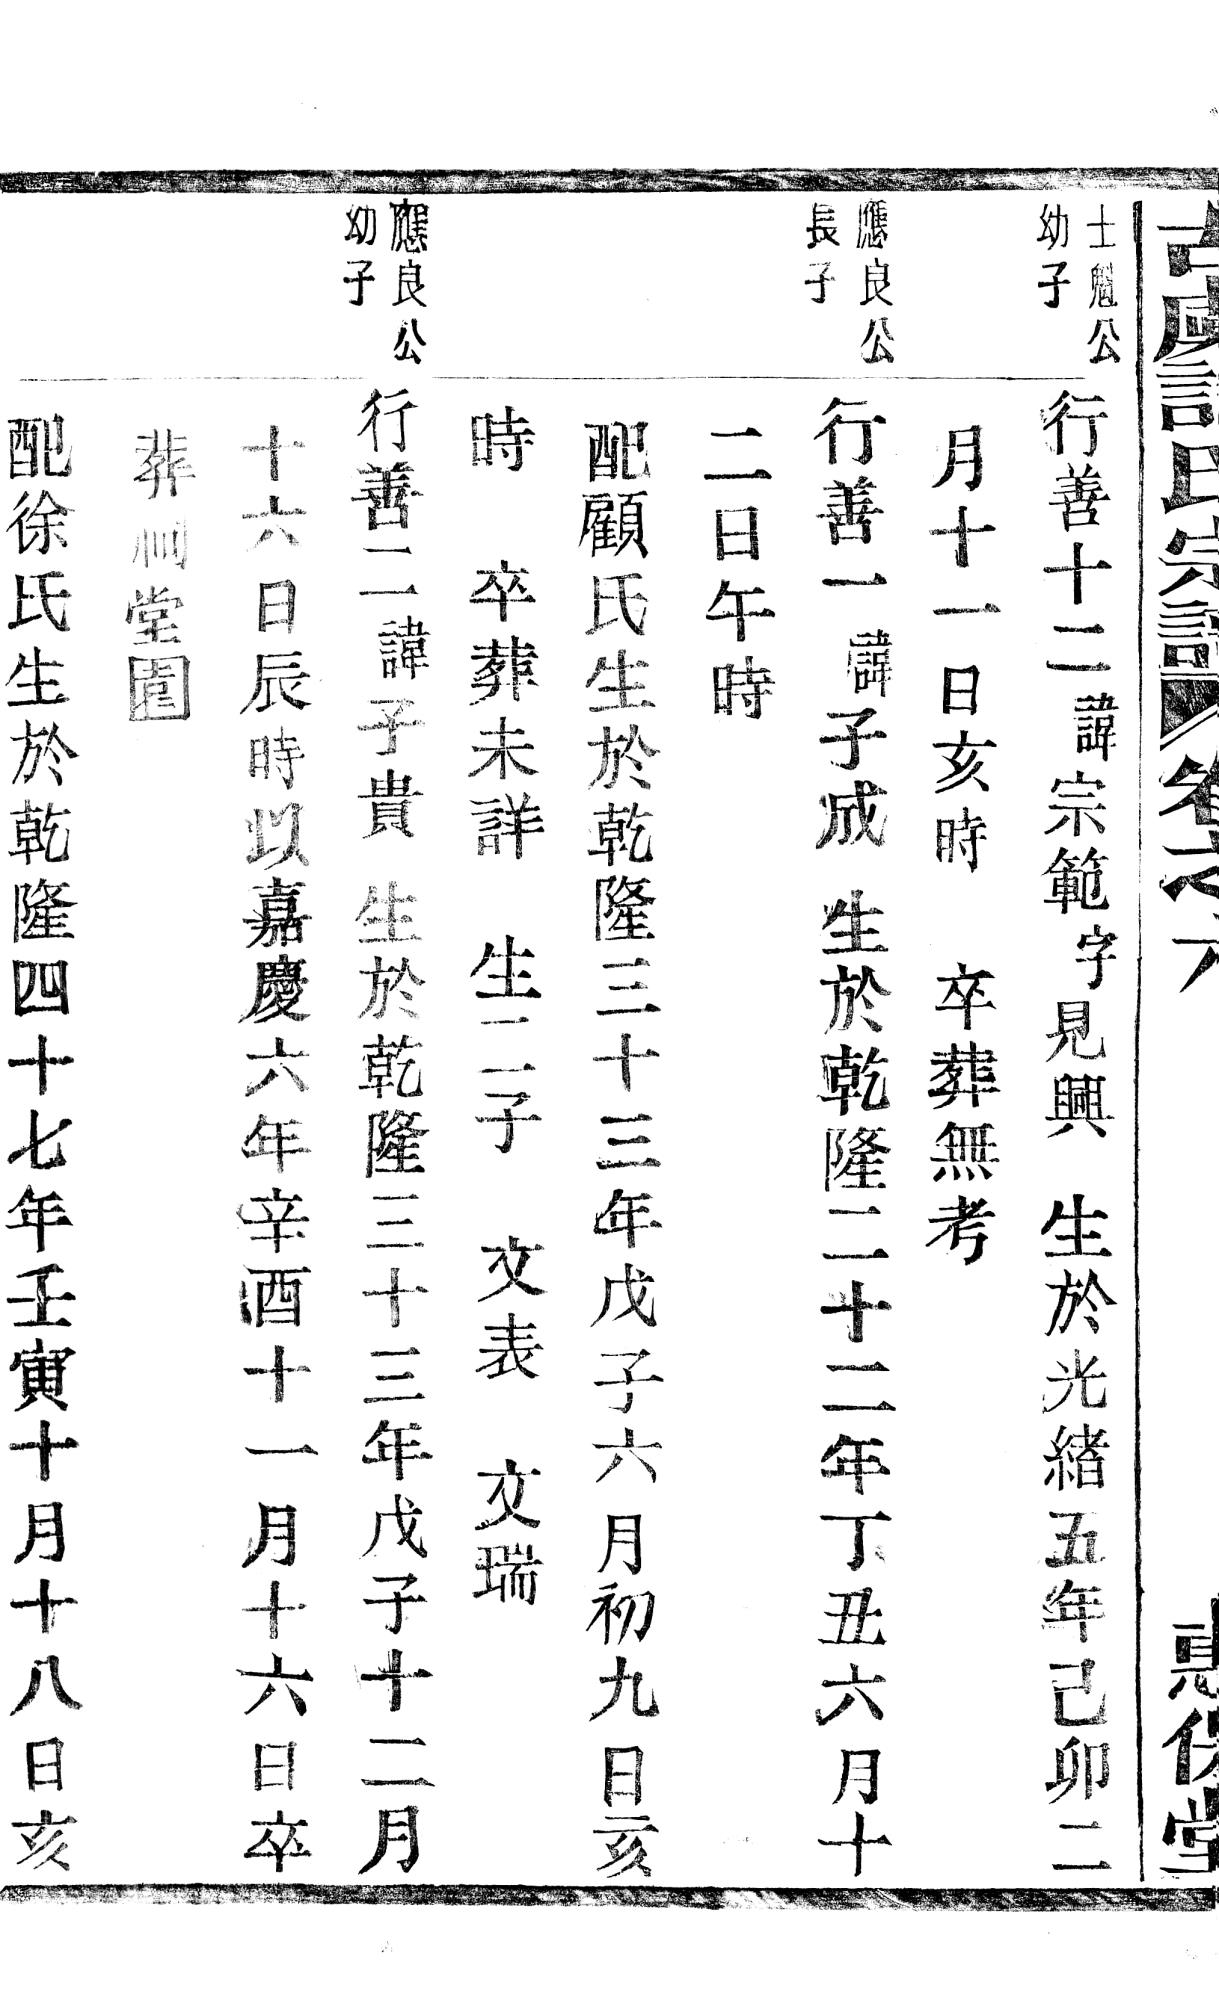 氏宗譜 卷之六 惠保堂
士魁公
幼子
行善十二諱宗範字見興 生於光緒五年己卯二
月十一日亥時 卒葬無考
應良公
長子
行善一諱子成 生於乾隆二十二年丁丑六月十
二日午時
配顧氏生於乾隆三十三年戊子六月初九日亥
時 卒葬未詳 生二子 文表 文瑞
應良公
幼子
行善二諱子貴 生於乾隆三十三年戊子十二月
十六日辰時以嘉慶六年辛酉十一月十六日卒
葬祠堂
配徐氏生於乾隆四十七年壬寅十月十八日亥